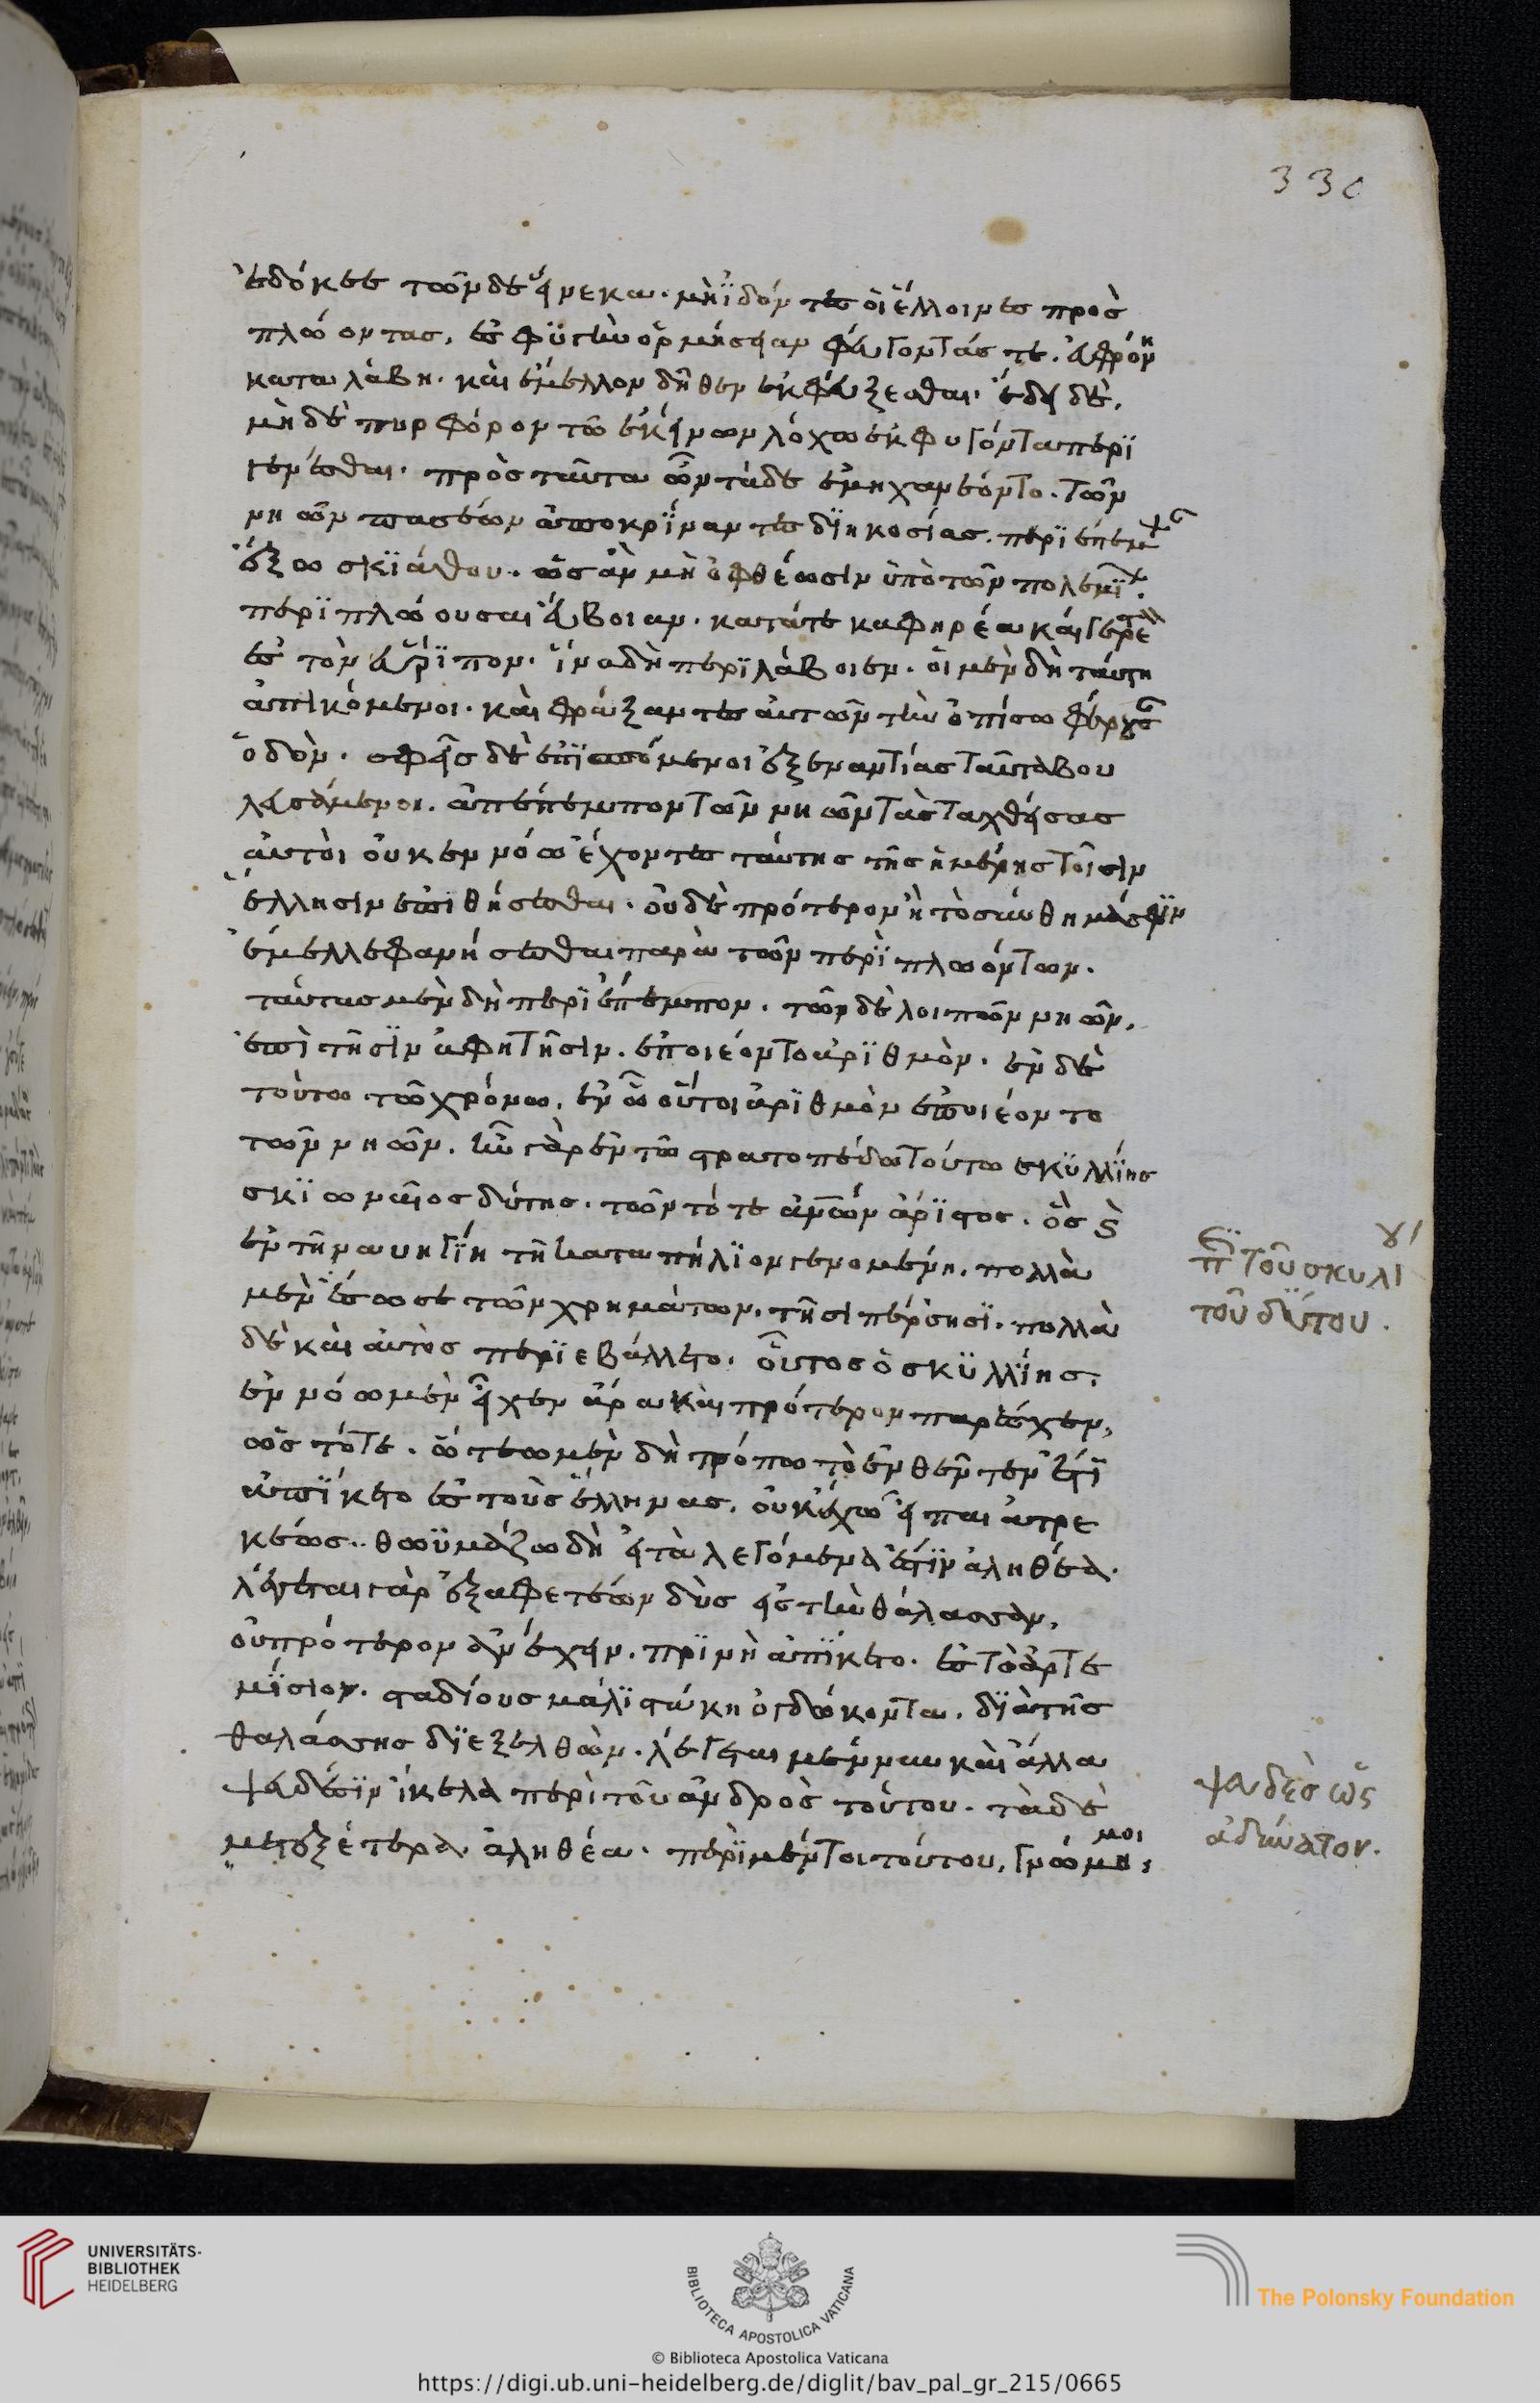 330
ἐδόκεε τῶνδε εἵνεκα. μὴ ἰδόντες οἱ ἕλληνες προσ
πλώοντας, ἐς φυγὴν ὁρμήσειαν φεύγοντάς τε. εὐφρόνη
καταλάβη. καὶ ἔμελλον δῆθεν ἐκφεύξεσθαι. ἔδει δὲ,
μηδὲ πυρφόρον τῶ ἐκείνων λόγω ἐκφυγόντα περι
γενέσθαι. πρὸς ταῦτα ὦν τάδε ἐμηχανέοντο. τῶν
νηῶν πασέων ἀποκρίναντες διηκοσίας. περιέπεμπον
ἔξω σκιάθου. ὡς ἂν μὴ ὀφθέωσιν ὑπὸ τῶν πολεμίων.
περιπλώουσαι εὔβοιαν. κατά τε καφηρέα καὶ γεραιστὸν
ἐς τὸν εὔριπον. ἵνα δὴ περιλάβοιεν. οἱ μὲν δὴ ταύτη
ἀπικόμενοι. καὶ φράξαντες αὐτῶν τὴν ὀπίσω φέρουσαν
ὁδὸν. σφεῖς δὲ ἐπισπόμενοι ἐξ ἐναντίας ταῦτα βου
λευσάμενοι. ἀπέπεμπον τῶν νηῶν τὰς ταχθείσας
αὐτοὶ οὐκ ἐν νόω ἔχοντες ταύτης τῆς ἡμέρης τοῖσιν
ἕλλησιν ἐπιθήσεσθαι. οὐδὲ πρότερον ἢ τὸ σύνθημά σφιν
ἔμελλε φανήσεσθαι παρὰ τῶν περιπλωόντων.
ταύτας μὲν δὴ περιέπεμπον. τῶν δὲ λοιπῶν νηῶν,
ἐπὶ τῆσιν ἀφητῆσιν. ἐποιέοντο ἀριθμόν. ἐν δὲ
τούτω τῶ χρόνω, ἐν ὧ οὗτοι ἀριθμὸν ἐποιέοντο
τῶν νηῶν. ἦν γὰρ ἐν τῶ στρατοπέδω τούτω σκυλλίης
σκιωναῖος δύτης. τῶν τότε ἀνθρώπων ἄριστος. ὃς καὶ
ἐν τῆ ναυηγίη τῆ κατὰ πήλιον γενομένη. πολλὰ
μὲν ἔσωσε τῶν χρημάτων. τῆσι πέρσησι. πολλὰ
δὲ καὶ αὐτὸς περιεβάλλετο. οὗτος ὁ σκυλλίης,
ἐν νόω μὲν εἶχεν ἄρα καὶ πρότερον παρέσχεν,
ὡς τότε. ὅτεω μὲν δὴ τρόπω τὸ ἐνθεῦτεν ἔτι
ἀπίκετο ἐς τοὺς ἕλληνας, οὐκ ἔχω εἶπαι ἀτρε
κέως. θωυμάζω δὴ εἰ τὰ λεγόμενά ἐστιν ἀληθέα.
λέγεται γὰρ ἐξ ἀφετέων δὺς ἐς τὴν θάλασσαν,
οὐ πρότερον ἀνέσχειν. πρὶν ἢ ἀπίκετο. ἐς τὸ ἀρτε
μίσιον. σταδίους μάλιστά κη ὀγδώκοντα. διὰ τῆς
θαλάσσης διεξελθών. λέγεται μέν νυν καὶ ἄλλα
ψευδέσιν ἴκελα περὶ τοῦ ἀνδρὸς τούτου. τὰ δὲ
μετεξέτερα ἀληθέα. περὶ μέντοι τούτου, γνώμη μοι
περὶ τοῦ σκυλίου
τοῦ δύτου.
ψευδὲς ὡς
ἀδύνατον.
UNIVERSITÄTS-
BIBLIOTHEK
HEIDELBERG
BIBLIOTECA APOSTOLICA VATICANA
The Polonsky Foundation
© Biblioteca Apostolica Vaticana
https://digi.ub.uni-heidelberg.de/diglit/bav_pal_gr_215/0665